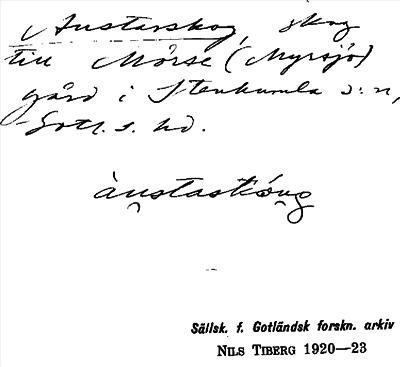 Austarskog, skog
till Mörse (Myrsjö)
gård i Stenkumla s:n,
Gotl. s. hd.
àustaskóug
Sällsk. f. Gotländsk forskn. arkiv
NILS TIBERG 1920—23